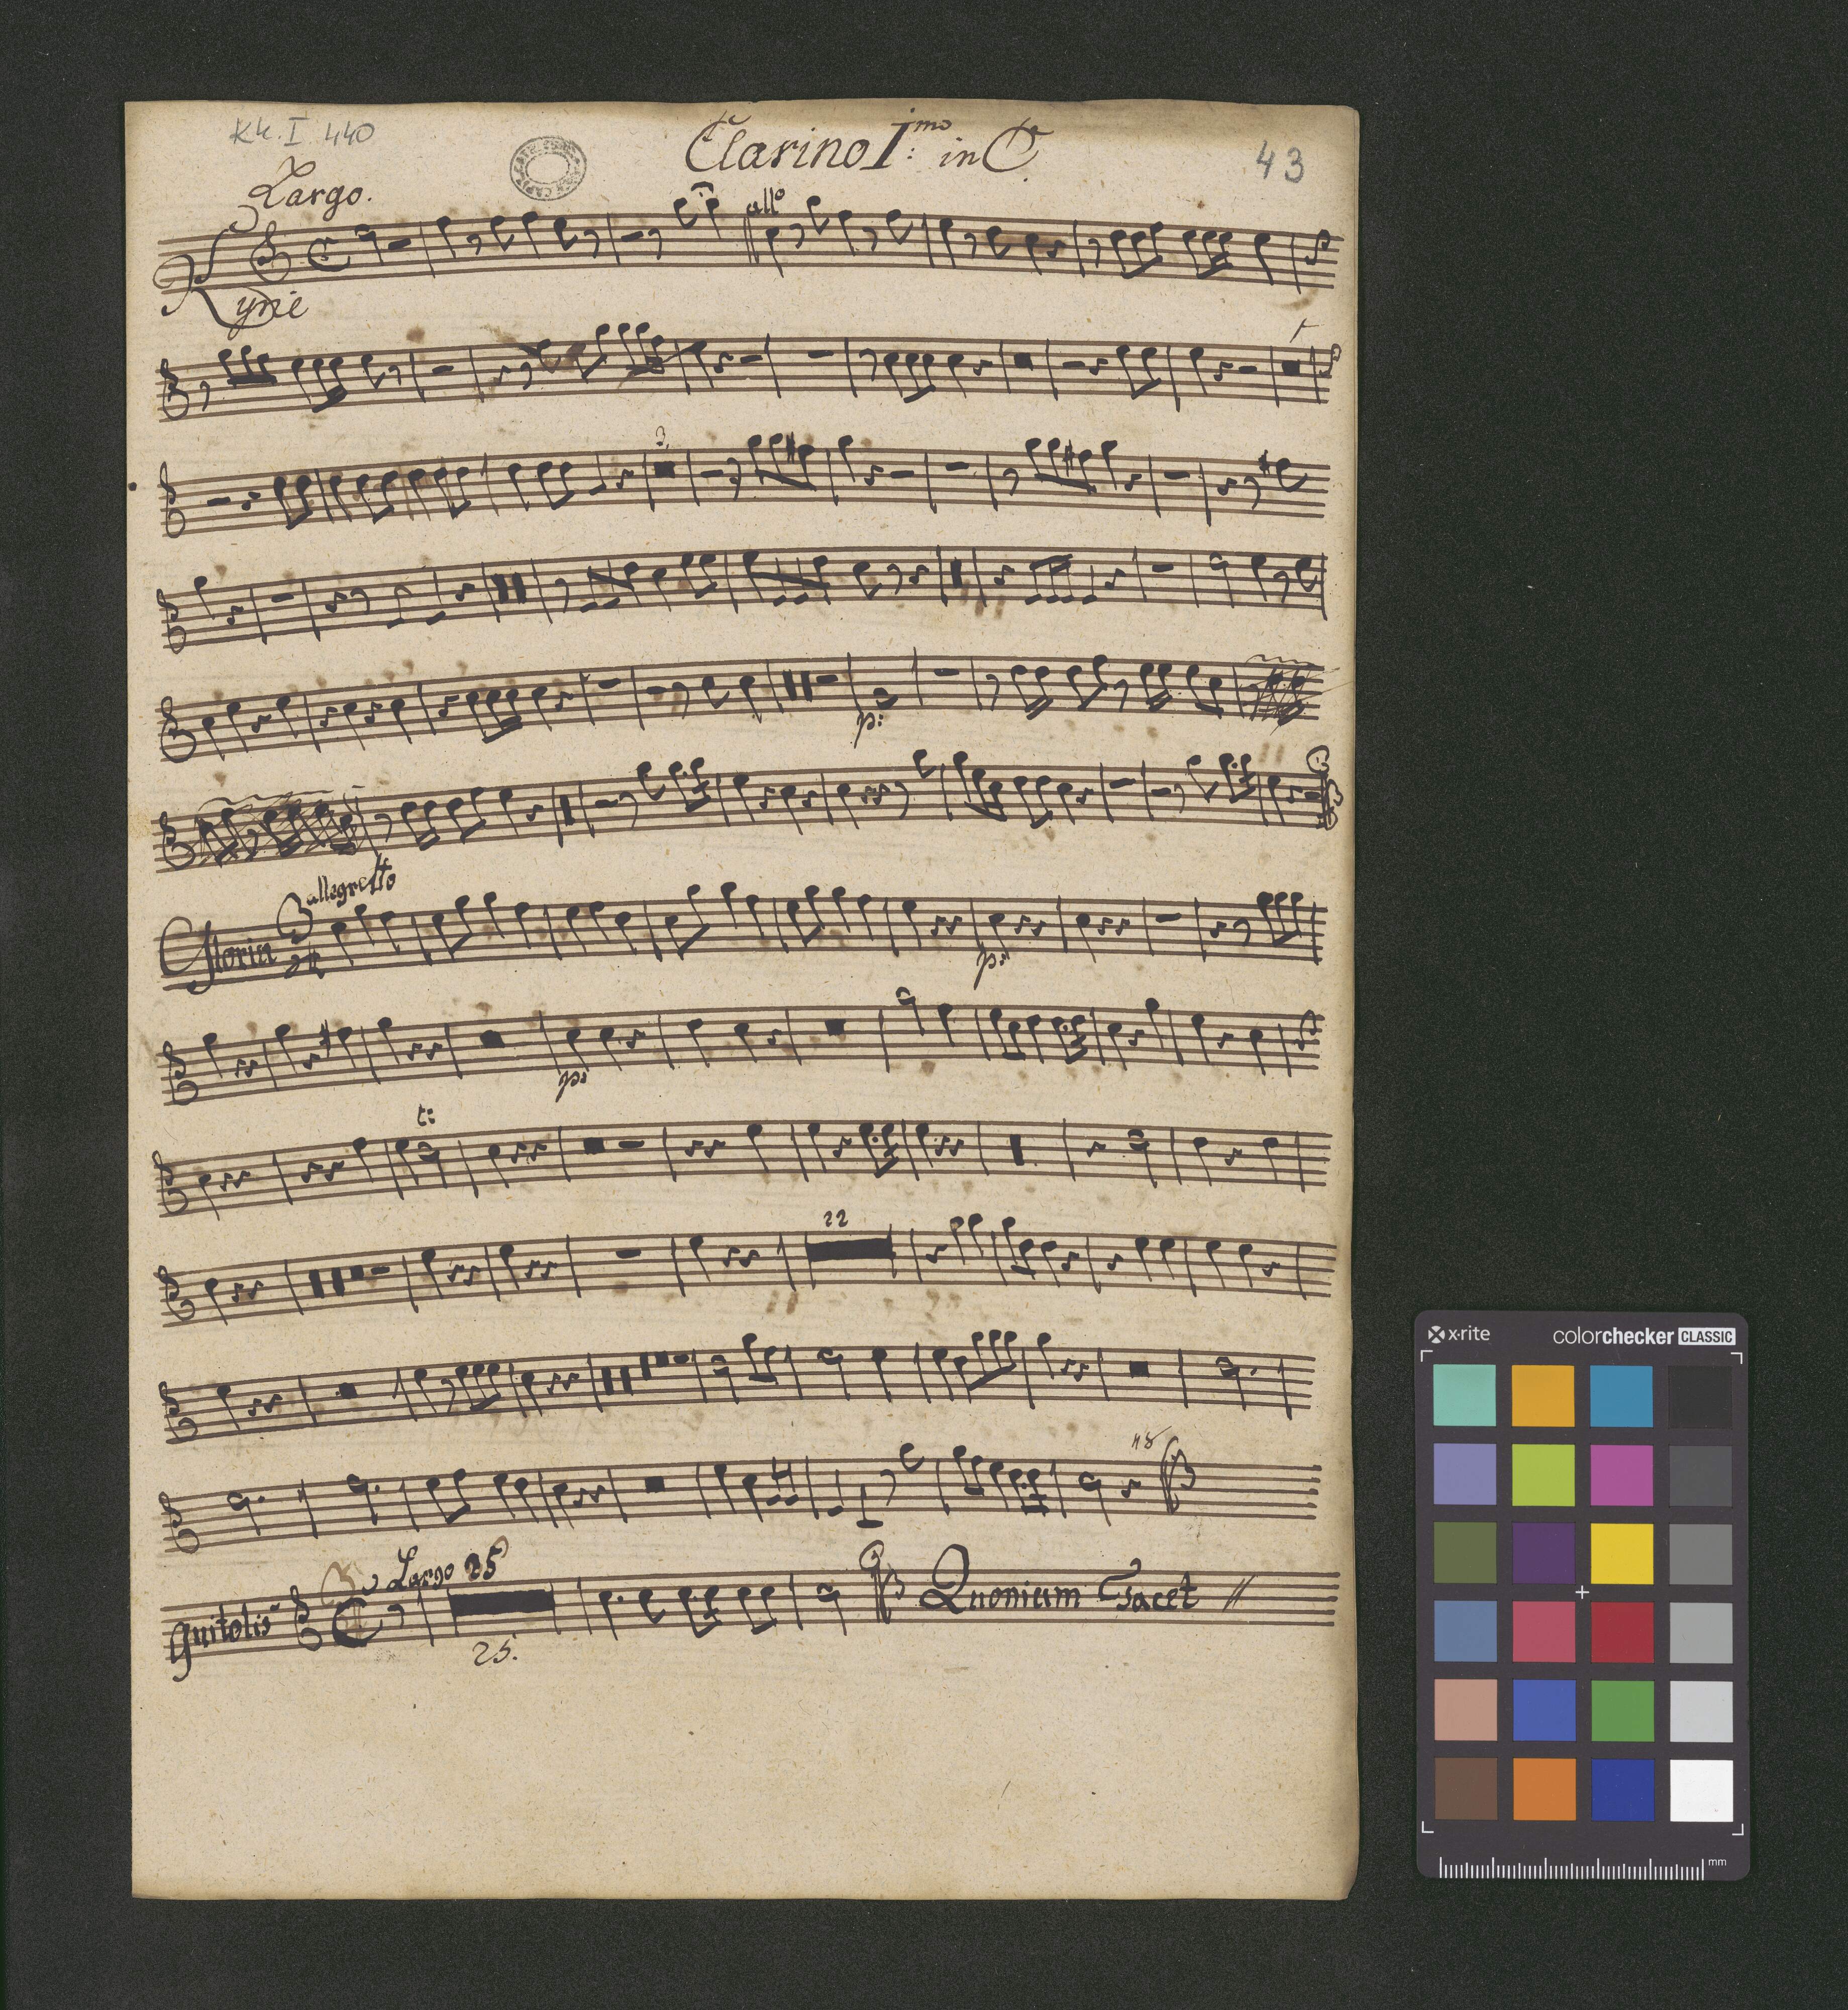 Kk. I 440
Clarino I:mo in C
43
Largo.
allo
Kyrie
3
p:
allegretto
Gloria
p:
p:
t:
22
Largo 25
Quitolis
25.
Quonium Tacet //
x-rite
colorchecker CLASSIC
mm